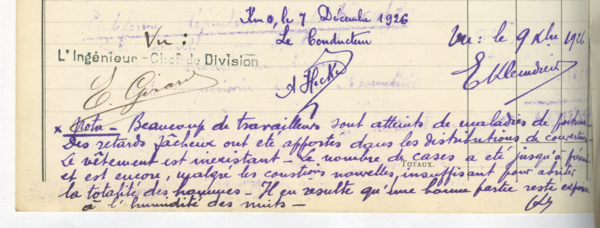 Km 0, le 7 Décembre 1926
Vu :
Le Conducteur
Vu : le 9 Xbre 1926
L'Ingénieur - Chef de Division
E. Girard
x Nota - Beaucoup de travailleurs sont atteints de maladies de poitrine
Des retards fâcheux ont été apportés dans les distributions de couvertures
Le vêtement est inexistant - Le nombre de cases a été jusqu'à présent
TOTAUX.
et est encore, malgré les constions nouvelles, insuffisant pour abriter
la totalité des hommes - Il en résulte qu'une bonne partie reste exposée
à l'humidité des nuits -